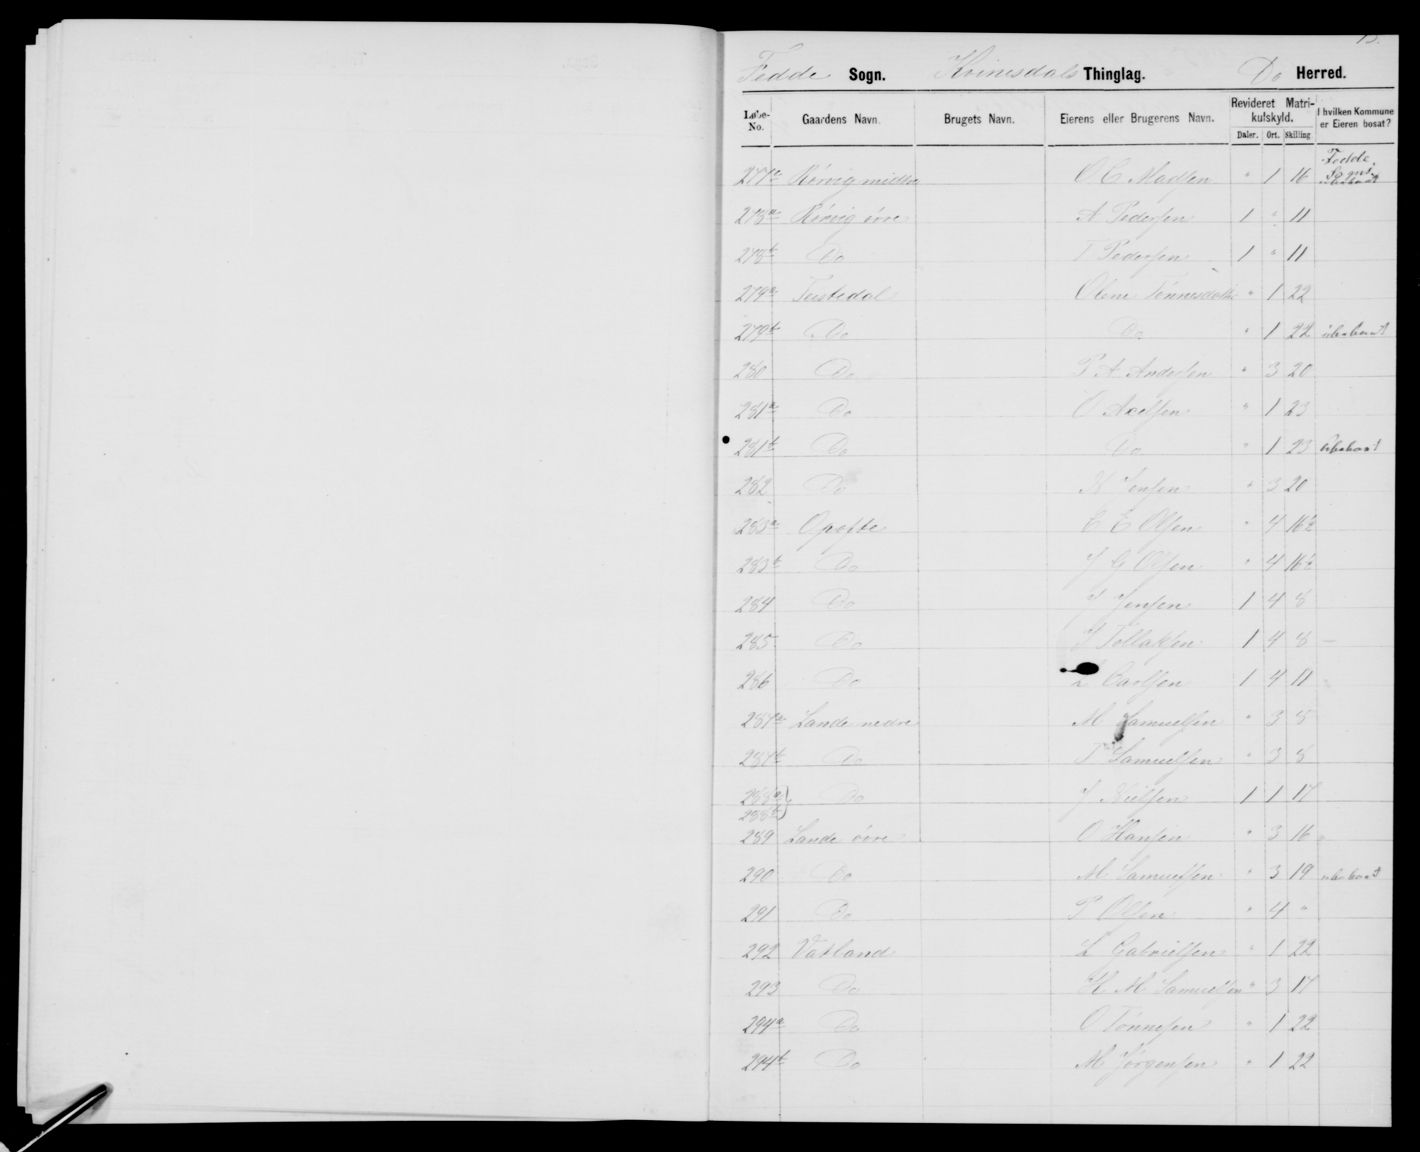 Fedde Sogn. Kvinesdals Thinglag. Do Herred.
Løbe-No. Gaardens Navn. Brugets Navn. Eierens eller Brugerens Navn. Revideret Matrikulskyld. Daler. Ort. Skilling I hvilken Kommune er Eieren bosat?
277 Rörvig midtre O C Madsen " 1 16 Fedde Sogn ubeboet
278a Rörvig övre A Pedersen 1 " 11
278b Do T Pedersen 1 " 11
279a Teistedal Olene Tönnesdatter " 1 22
279b Do Do " 1 22 ubeboet
280 Do P A Andersen " 3 20
281a Do O Axelsen " 1 23
281b Do Do " 1 23 ubeboet
282 Do Jensen " 3 20
283a Opofte C E Olsen " 4 16½
283b Do J G Olsen " 4 16½
284 Do J Jensen 1 4 8
285 Do J Tollaksen 1 4 8
286 Do Carlsen 1 4 11
287a Lande nedre M Samuelsen " 3 8
287b Do T Samuelsen " 3 8
288a Do J Nielsen 1 1 17
288b
289 Lande övre O Hansen " 3 16
290 Do M Samuelsen " 3 19 ubeboet
291 Do P Olsen " 4 "
292 Vatland L Gabrielsen " 1 22
293 Do H M Samuelsen " 3 17
294a Do O Tönnesen " 1 22
294b Do M Jörgensen " 1 22